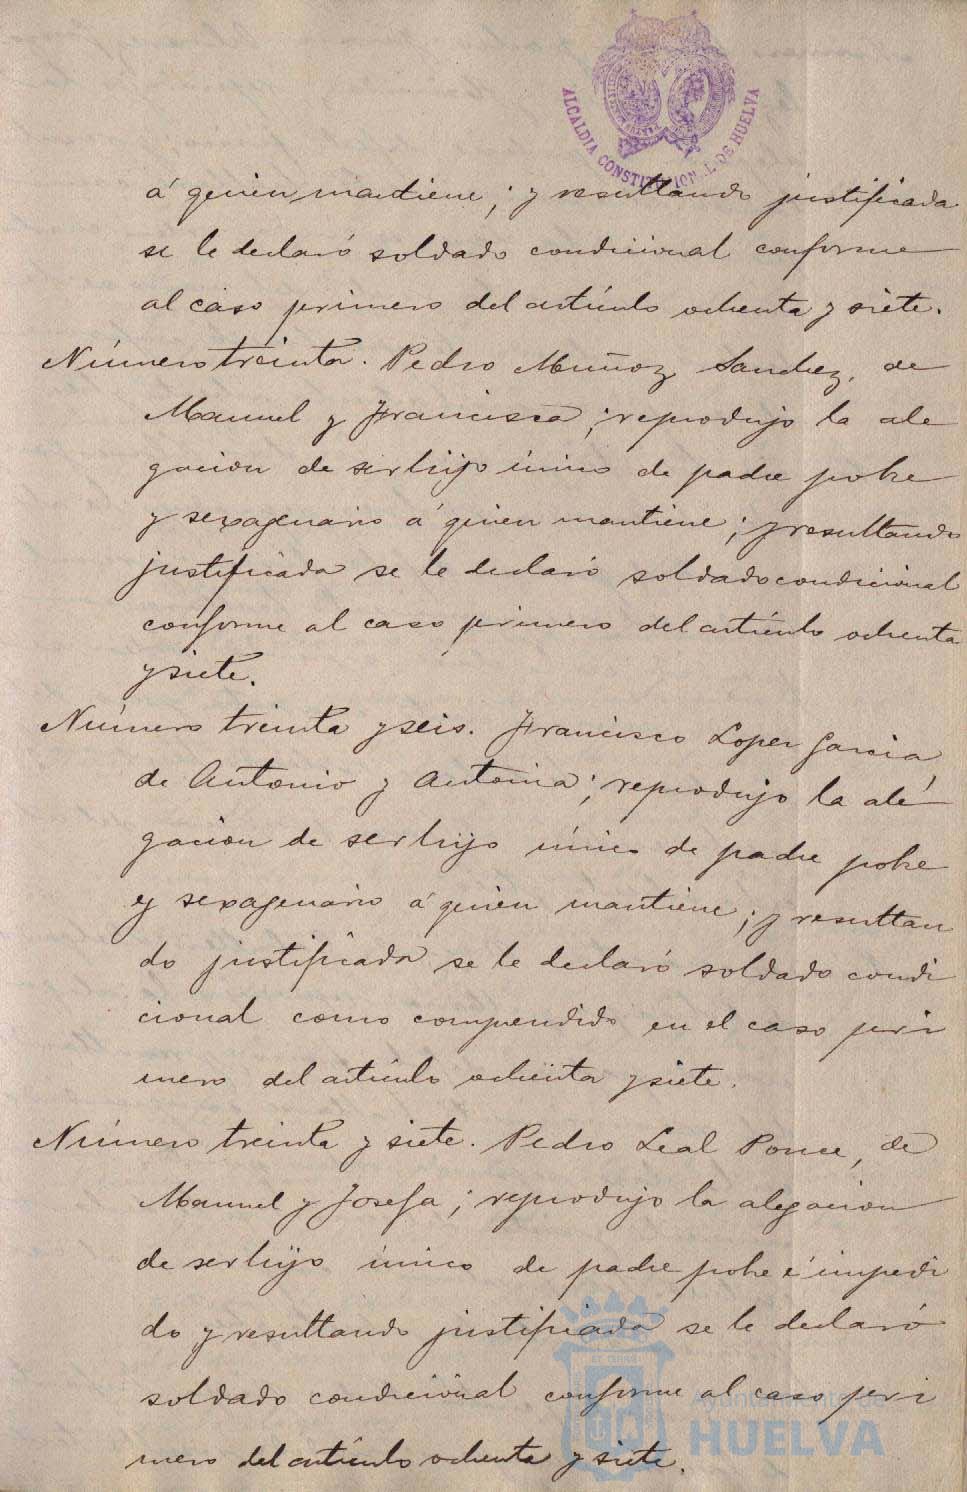 ALCALDIA CONSTITUCIONAL DE HUELVA
á quien mantiene; y resultando justificada
se le declaró soldado condicional conforme
al caso primero del artículo ochenta y siete.
Número treinta. Pedro Muñoz Sanchez, de
Manuel y Francisca; reprodujo la ale
gacion de ser hijo único de padre pobre
y sexagenario á quien mantiene; y resultando
justificada se le declaró soldado condicional
conforme al caso primero del artículo ochenta
y siete.
Número treinta y seis. Francisco Lopez Garcia,
de Antonio y Antonia; reprodujo la ale
gacion de ser hijo único de padre pobre
y sexagenario á quien mantiene; y resultan
do justificada se le declaró soldado condi
cional como comprendido en el caso pri
mero del artículo ochenta y siete.
Número treinta y siete. Pedro Leal Ponce, de
Manuel y Josefa; reprodujo la alegacion
de ser hijo único de padre pobre é impedi
do y resultando justificada se le declaró
soldado condicional conforme al caso pri
mero del artículo ochenta y siete.
Ayuntamiento de
HUELVA